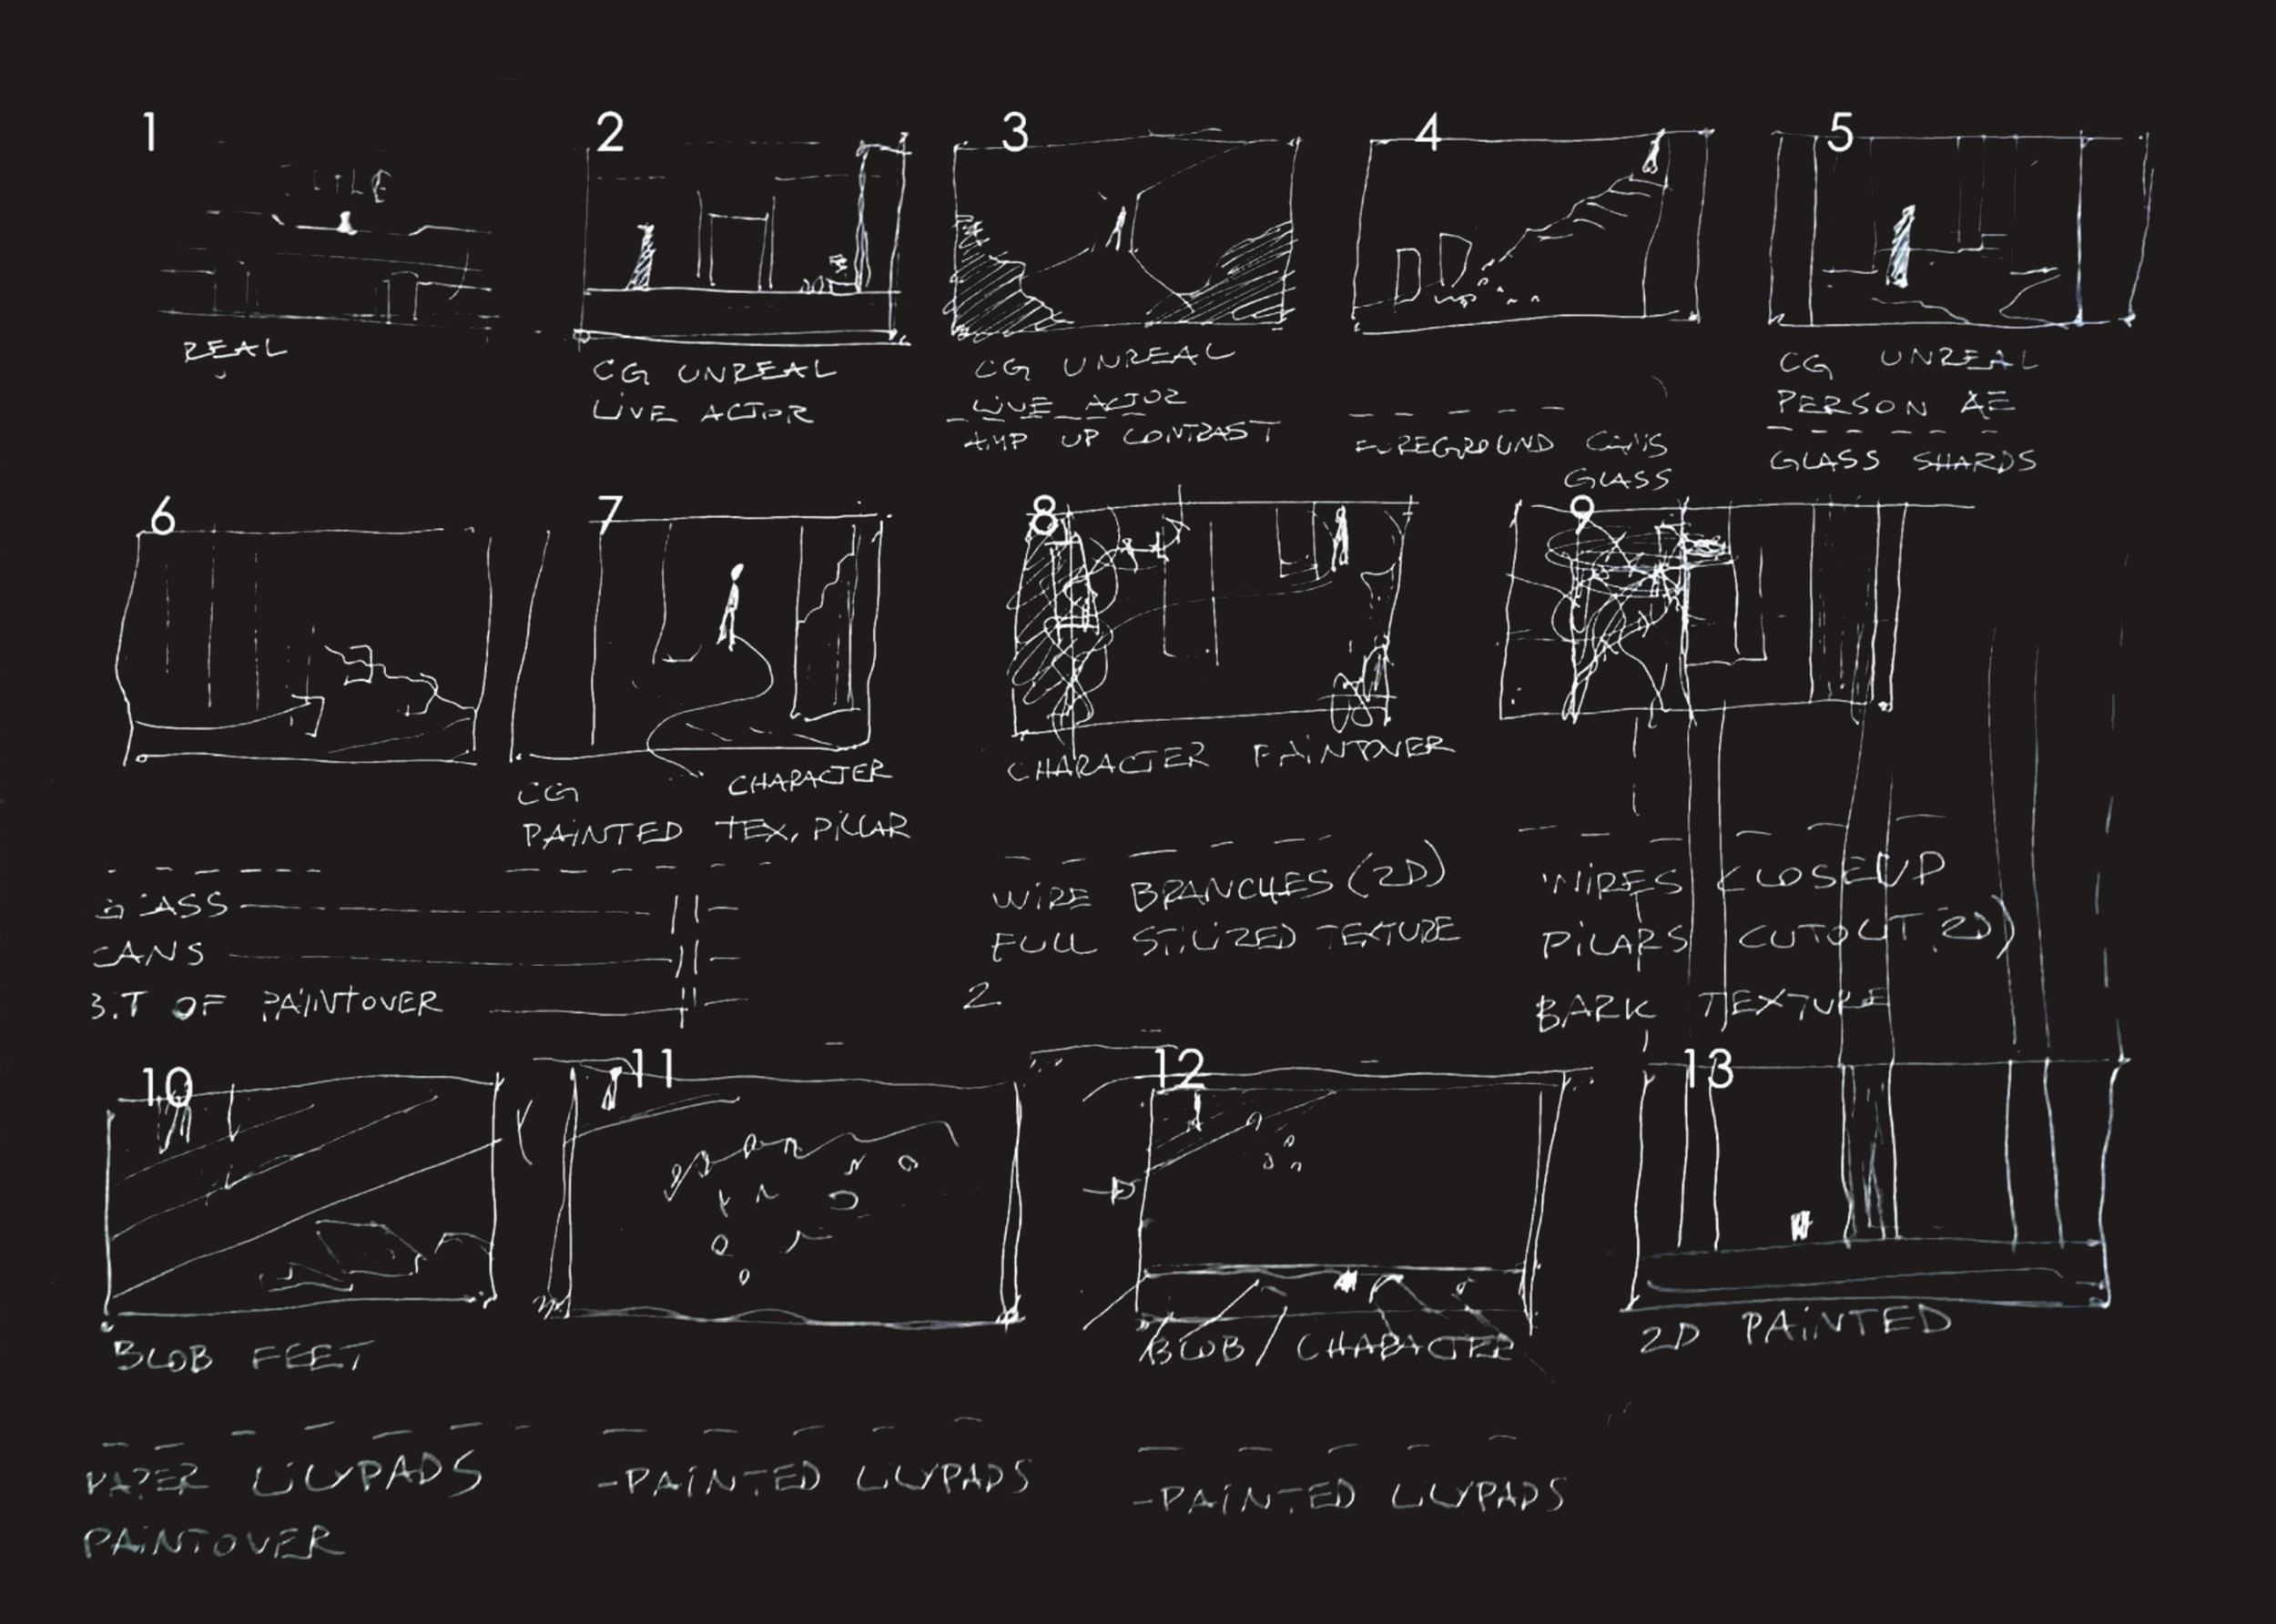 1
2
3
4
5
REAL
CG UNREAL
LIVE ACTOR
CG UNREAL
LIVE ACTOR
AMP UP CONTRAST
FOREGROUND CANS
GLASS
CG UNREAL
PERSON AE
GLASS SHARDS
6
7
8
9
CG CHARACTER
PAINTED TEX. PILLAR
CHARACTER PAINTOVER
GLASS
CANS
BIT OF PAINTOVER
WIRE BRANCHES (2D)
FULL STILIZED TEXTURE
2
WIRES CLOSEUP
PILARS CUTOUT 2D)
BARK TEXTURE
10
11
12
13
BLOB FEET
BLOB / CHARACTER
2D PAINTED
PAPER LILYPADS
PAINTOVER
-PAINTED LILYPADS
-PAINTED LILYPADS